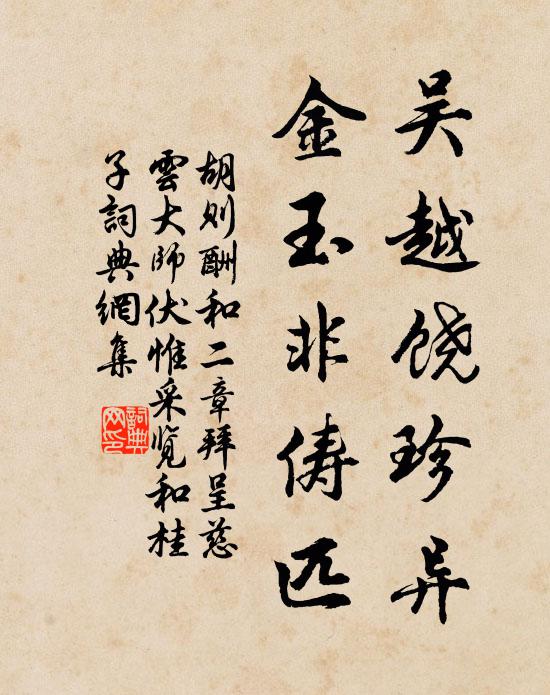 吴越饶珍异
金玉非俦匹
胡则酬和二章拜呈慈
雲大师伏惟采览和桂
子詞典網集
詞典网印